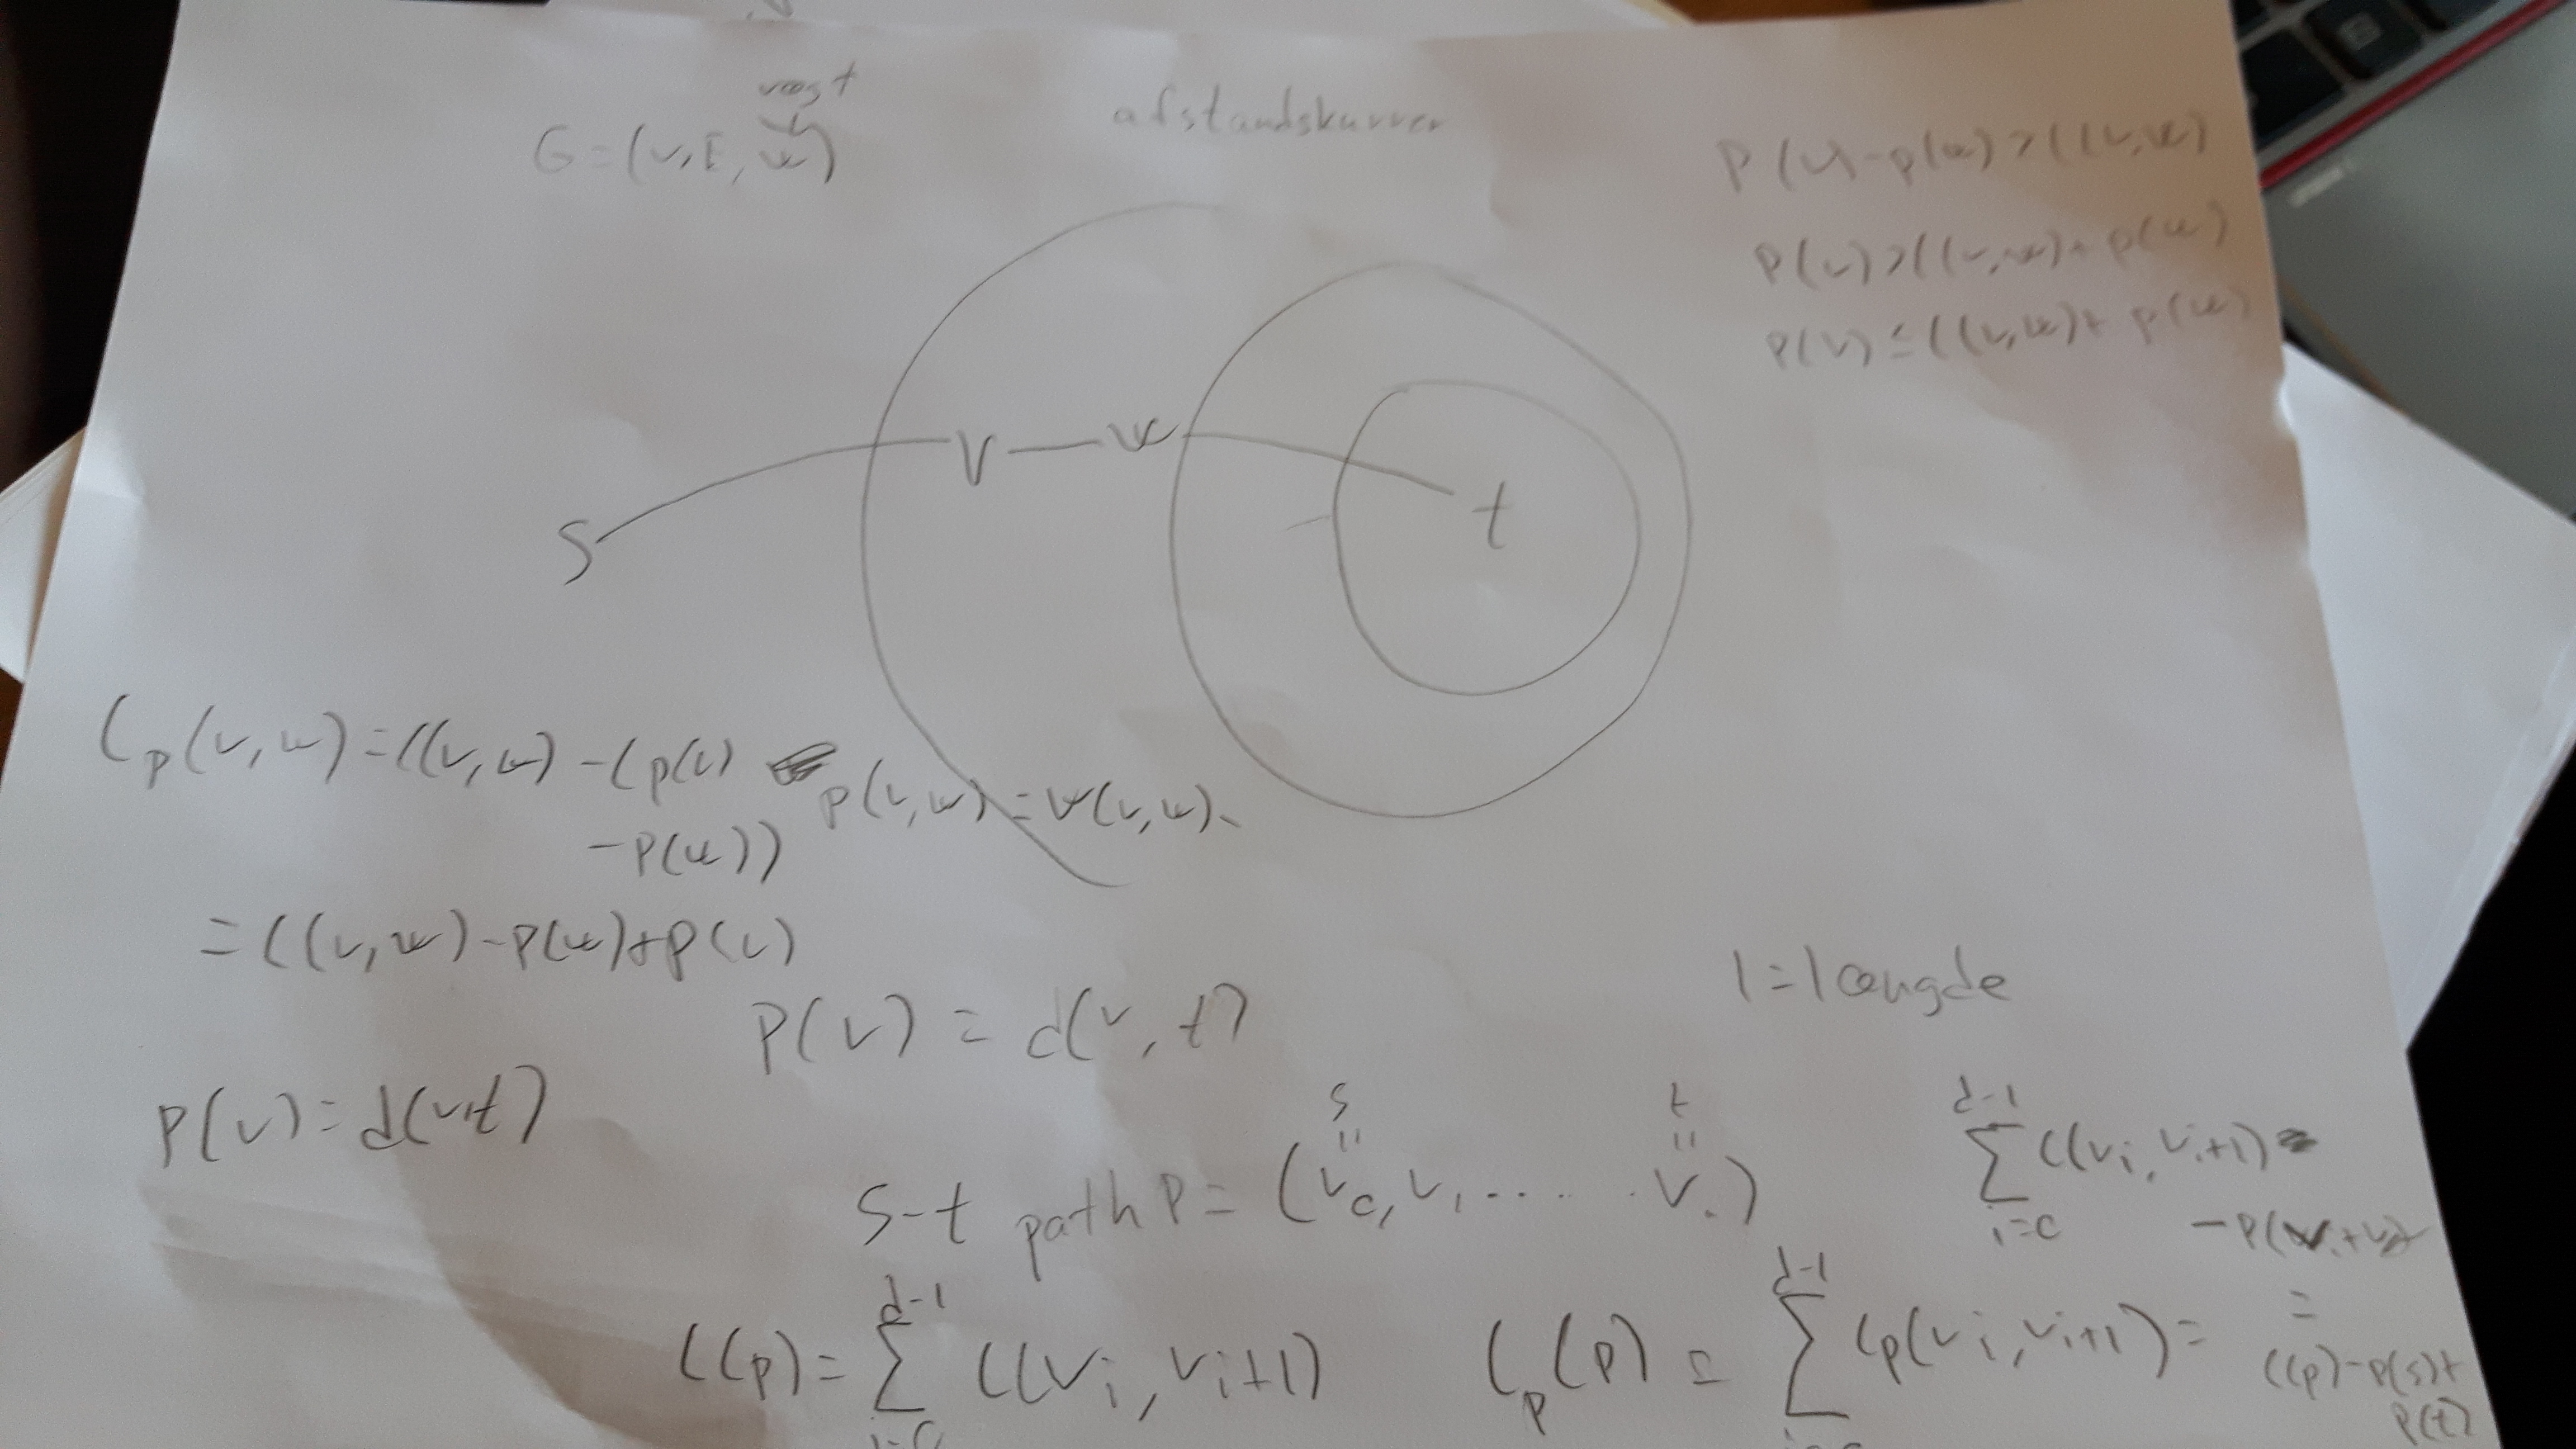 vægt
G = (V, E, w)
afstandskurver
p(v) - p(w) > l(v,w)
p(v) > l(v,w) + p(w)
p(v) ≤ l(v,w) + p(w)
v — w
s
t
lp(v,w) = l(v,w) - (p(v)
- p(w))
p(v,w) = w(v,w) -
= l(v,w) - p(w) + p(v)
l = længde
p(v) = d(v,t)
p(v) = d(v,t)
s t
= =
s-t path P = (v0, v1 ..... v.)
d-1
∑ l(vi, vi+1)
i=0
- p(vi+1)
=
l(p) - p(s) +
p(t)
d-1
l(p) = ∑ l(vi, vi+1)
i=0
d-1
lp(p) = ∑ lp(vi, vi+1) =